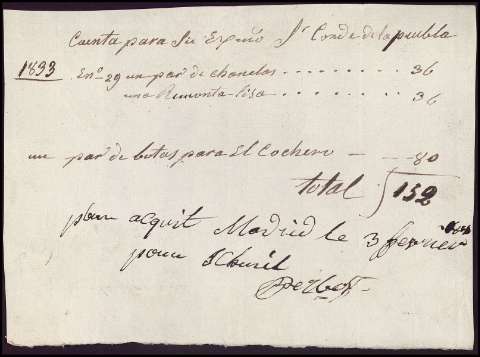 Cuenta para Su Exmo Sr Conde de la puebla
1833 En.º 29 un par de chanclas . . . . . . . . . 36
una Remonta lisa . . . . . . . . 36
un par de botas para El Cochero — — 80
total 152
pour acquit Madrid le 3 fevrier
pour